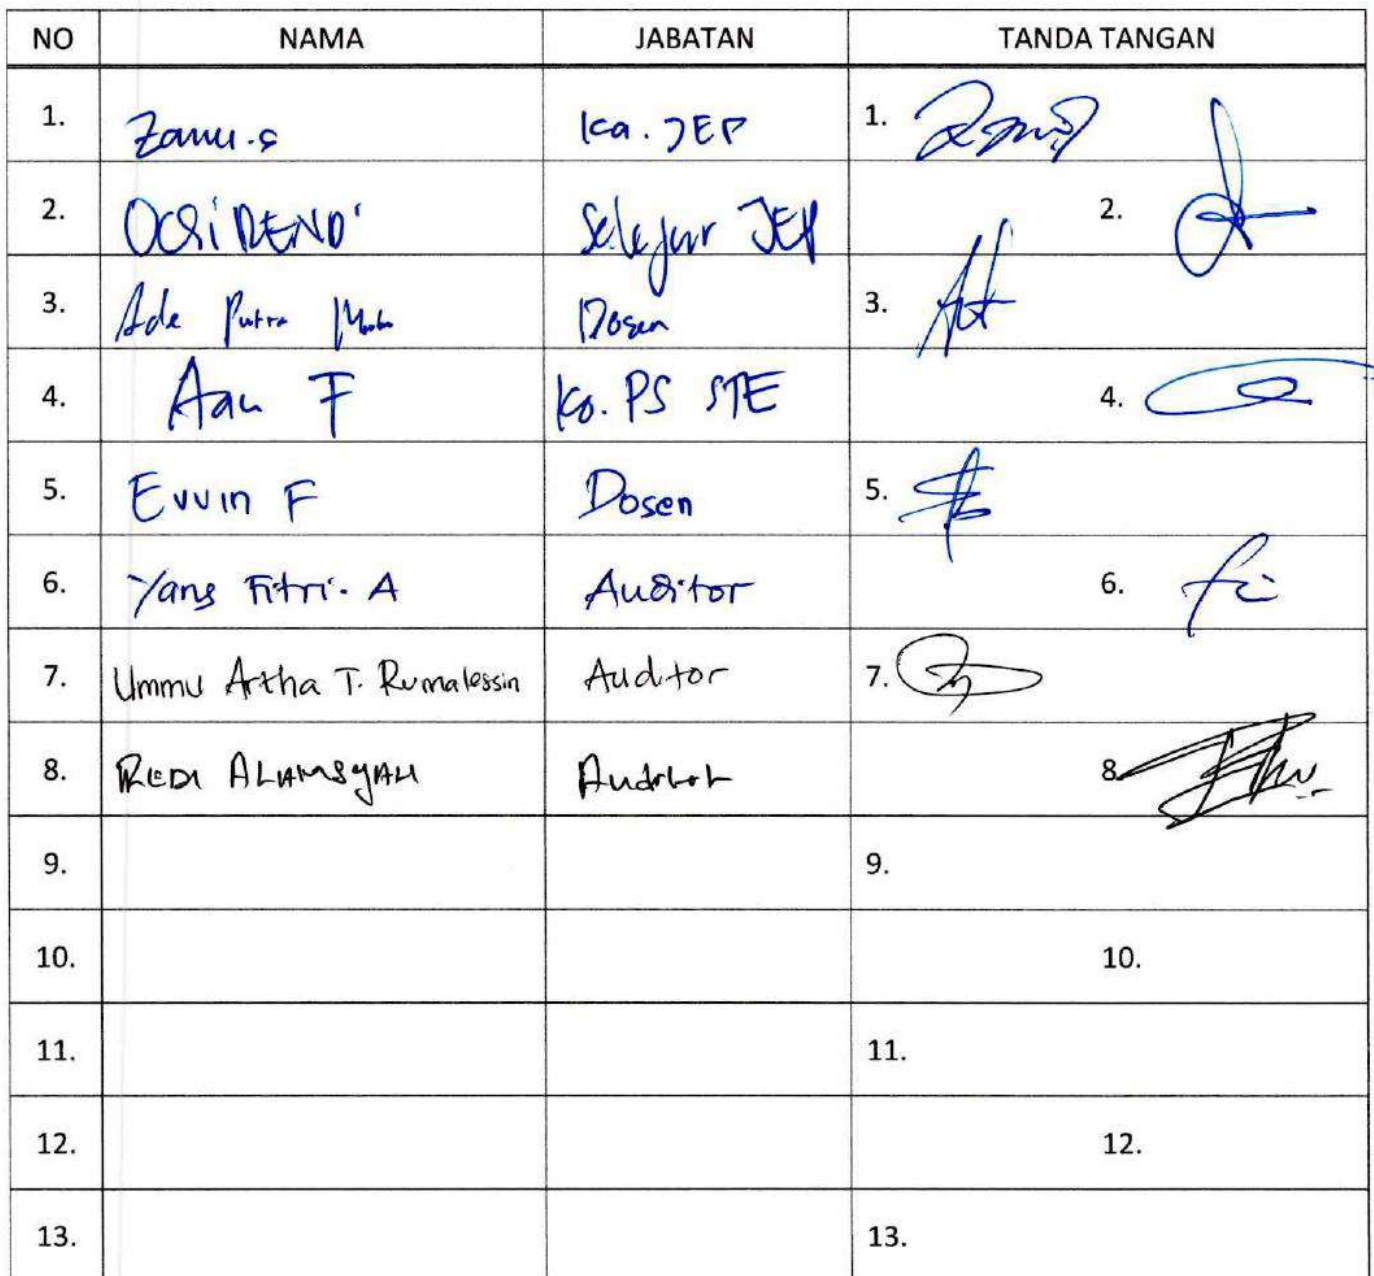 NO NAMA JABATAN TANDA TANGAN
1. Zamu.s Ka. JEP 1.
2. OCSiRENDi Sekjur JEP 2.
3. Ade Putra Dosen 3.
4. Aan F Ko. PS STE 4.
5. Evvin F Dosen 5.
6. Yang Fitri. A Auditor 6.
7. Ummu Artha T. Rumalessin Auditor 7.
8. REDI ALAMSYAH Auditor 8.
9. 9.
10. 10.
11. 11.
12. 12.
13. 13.